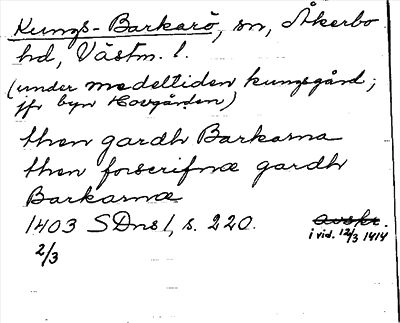 Kungs-Barkarö, sn, Åkerbo
hd, Västm. l.
(under medeltiden kungsgård;
jfr byn Hovgården)
then gardh Barkarna
then forscrifnæ gardh
Barkarnæ
1403 SDns 1, s. 220. avskr.
2/3 i vid. 12/3 1414